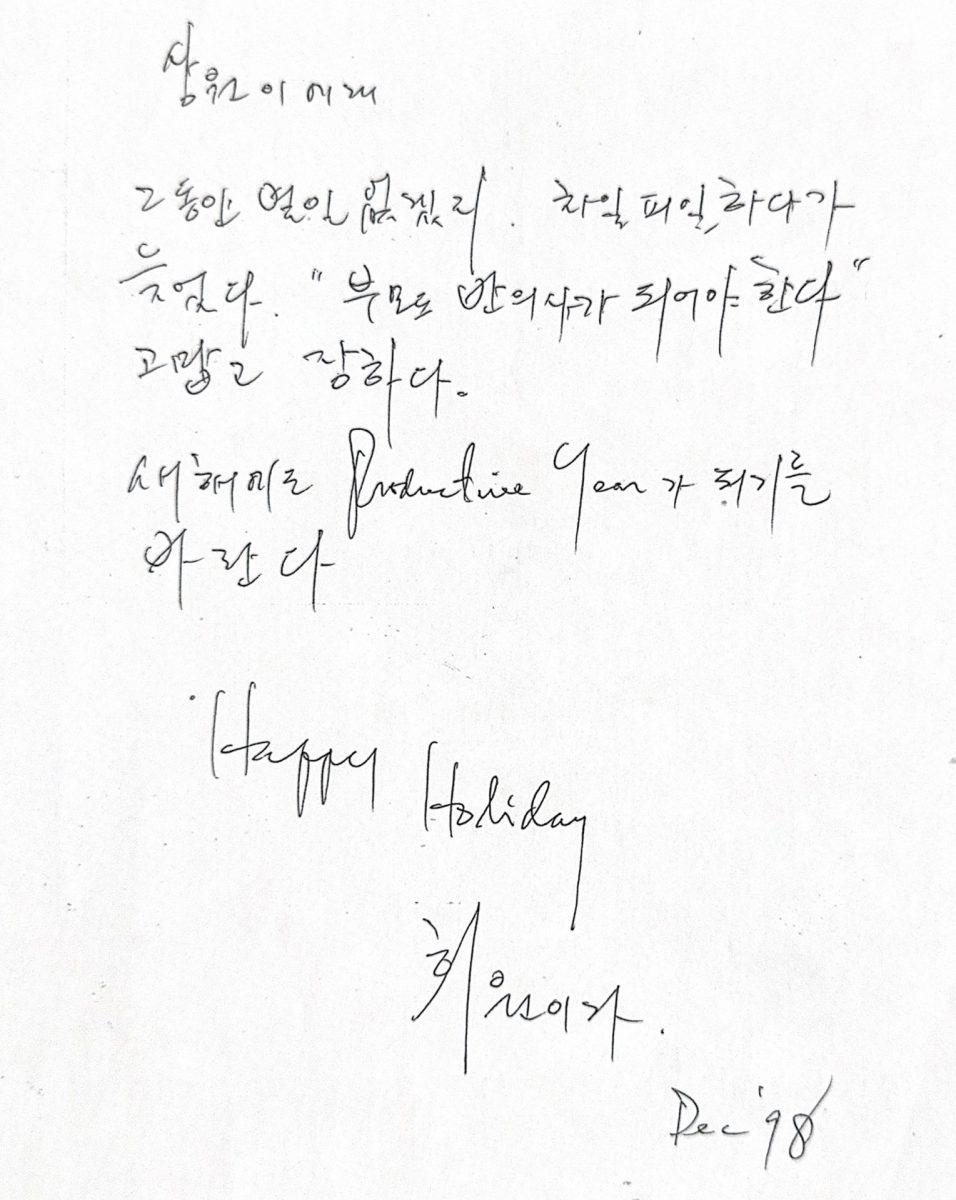 상원이에게
그동안 별일 없겠지. 차일피일하다가
늦었다. "부모도 반의사가 되어야 한다"
고맙고 장하다.
새해에도 Productive Year가 되기를
바란다
Happy
Holiday
희원이가.
Dec '98